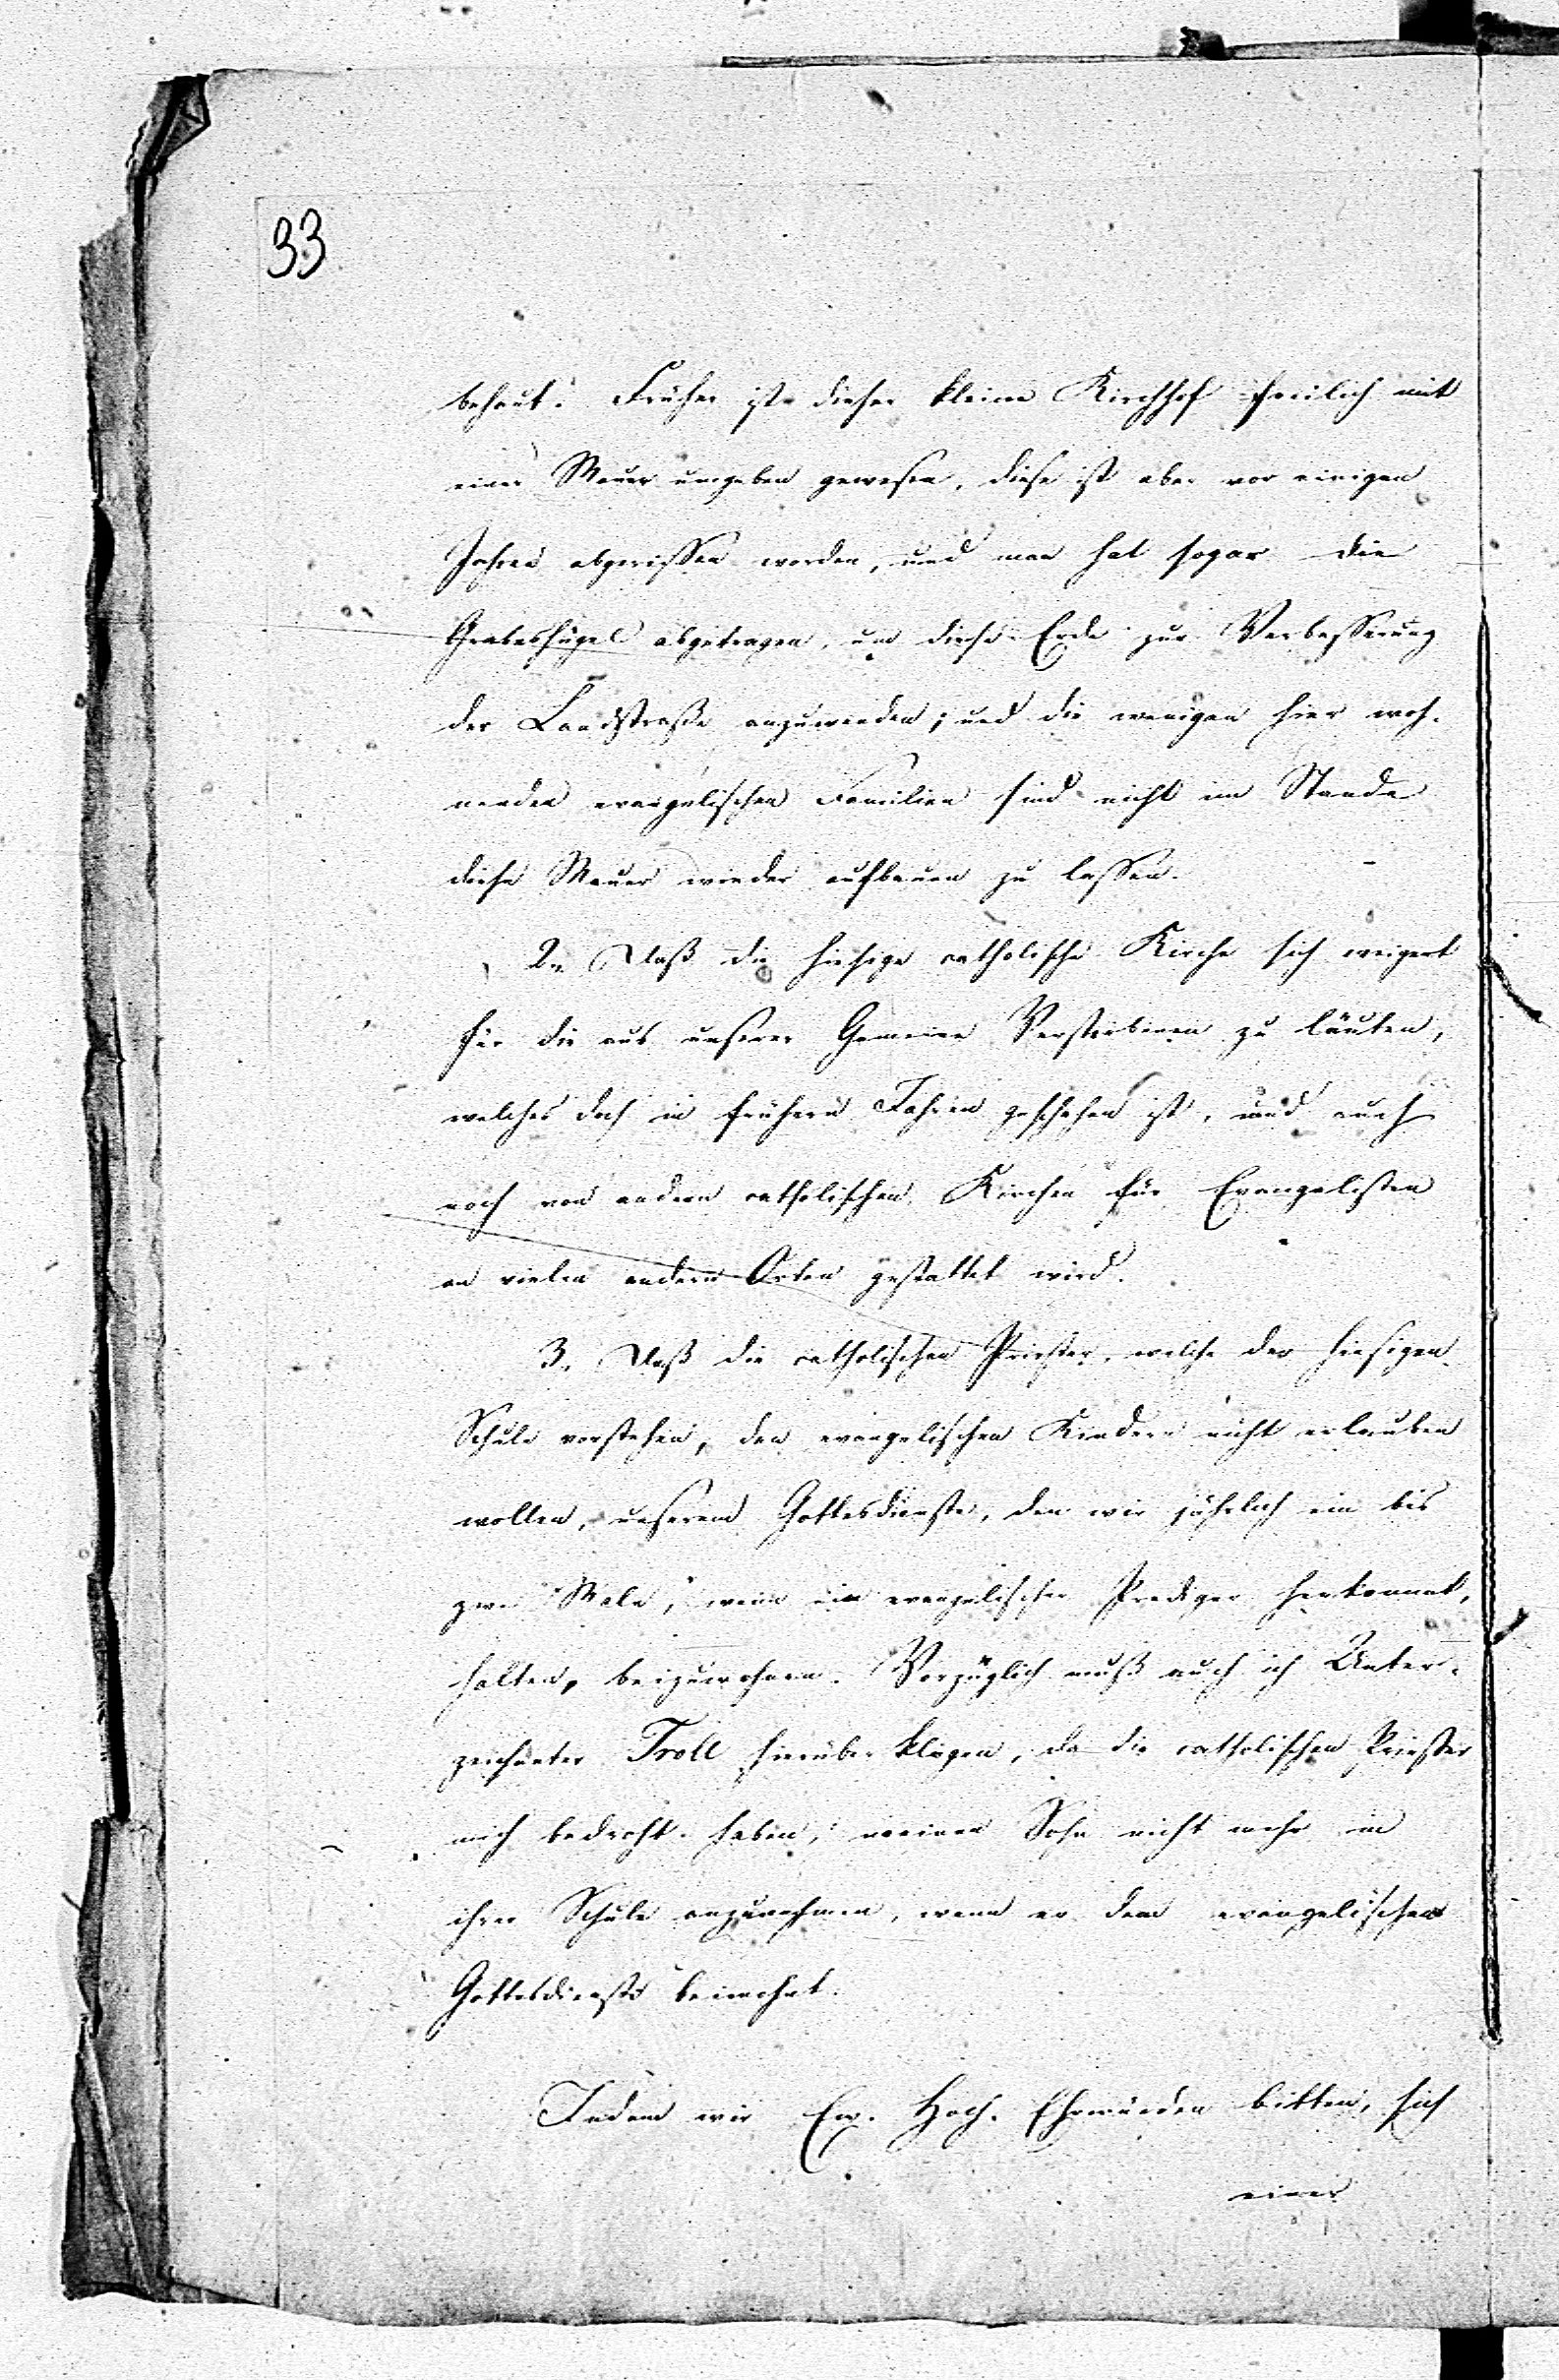 33
behaut. Früher ist dieser kleine Kirchhof freilich mit
einer Mauer umgeben gewesen, diese ist aber vor einigen
Jahren abgerissen worden, und man hat sogar die
Grabeshügel abgetragen, um diese Erde zur Verbesserung
der Landstraße anzuwenden; und die wenigen hier woh-
nenden evangelischen Familien sind nicht im Stande
diese Mauer wieder aufbauen zu lassen.
2., Daß die hiesige catholische Kirche sich weigert
für die aus unserer Gemeine Verstorbenen zu läuten,
welches doch in frühern Jahren geschehen ist, und auch
noch von andern catholischen Kirchen für Evangelisten
an vielen andern Orten gestattet wird.
3., Daß die catholischen Priester, welche der hiesigen
Schule vorstehen, den evangelischen Kindern nicht erlauben
wollen, unserem Gottesdienste, den wir jährlich ein bis
zwei Male, wenn ein evangelischer Prediger herkommt,
halten, beizuwohnen. Vorzüglich muß auch ich Unter-
zeichneter Troll hierüber klagen, da die catholischen Priester
mich bedroht haben, meinen Sohn nicht mehr in
ihrer Schule anzunehmen, wenn er dem evangelischen
Gottesdienste beiwohnt.
Indem wir Ew. Hoch. Ehrwürden bitten, sich
einer